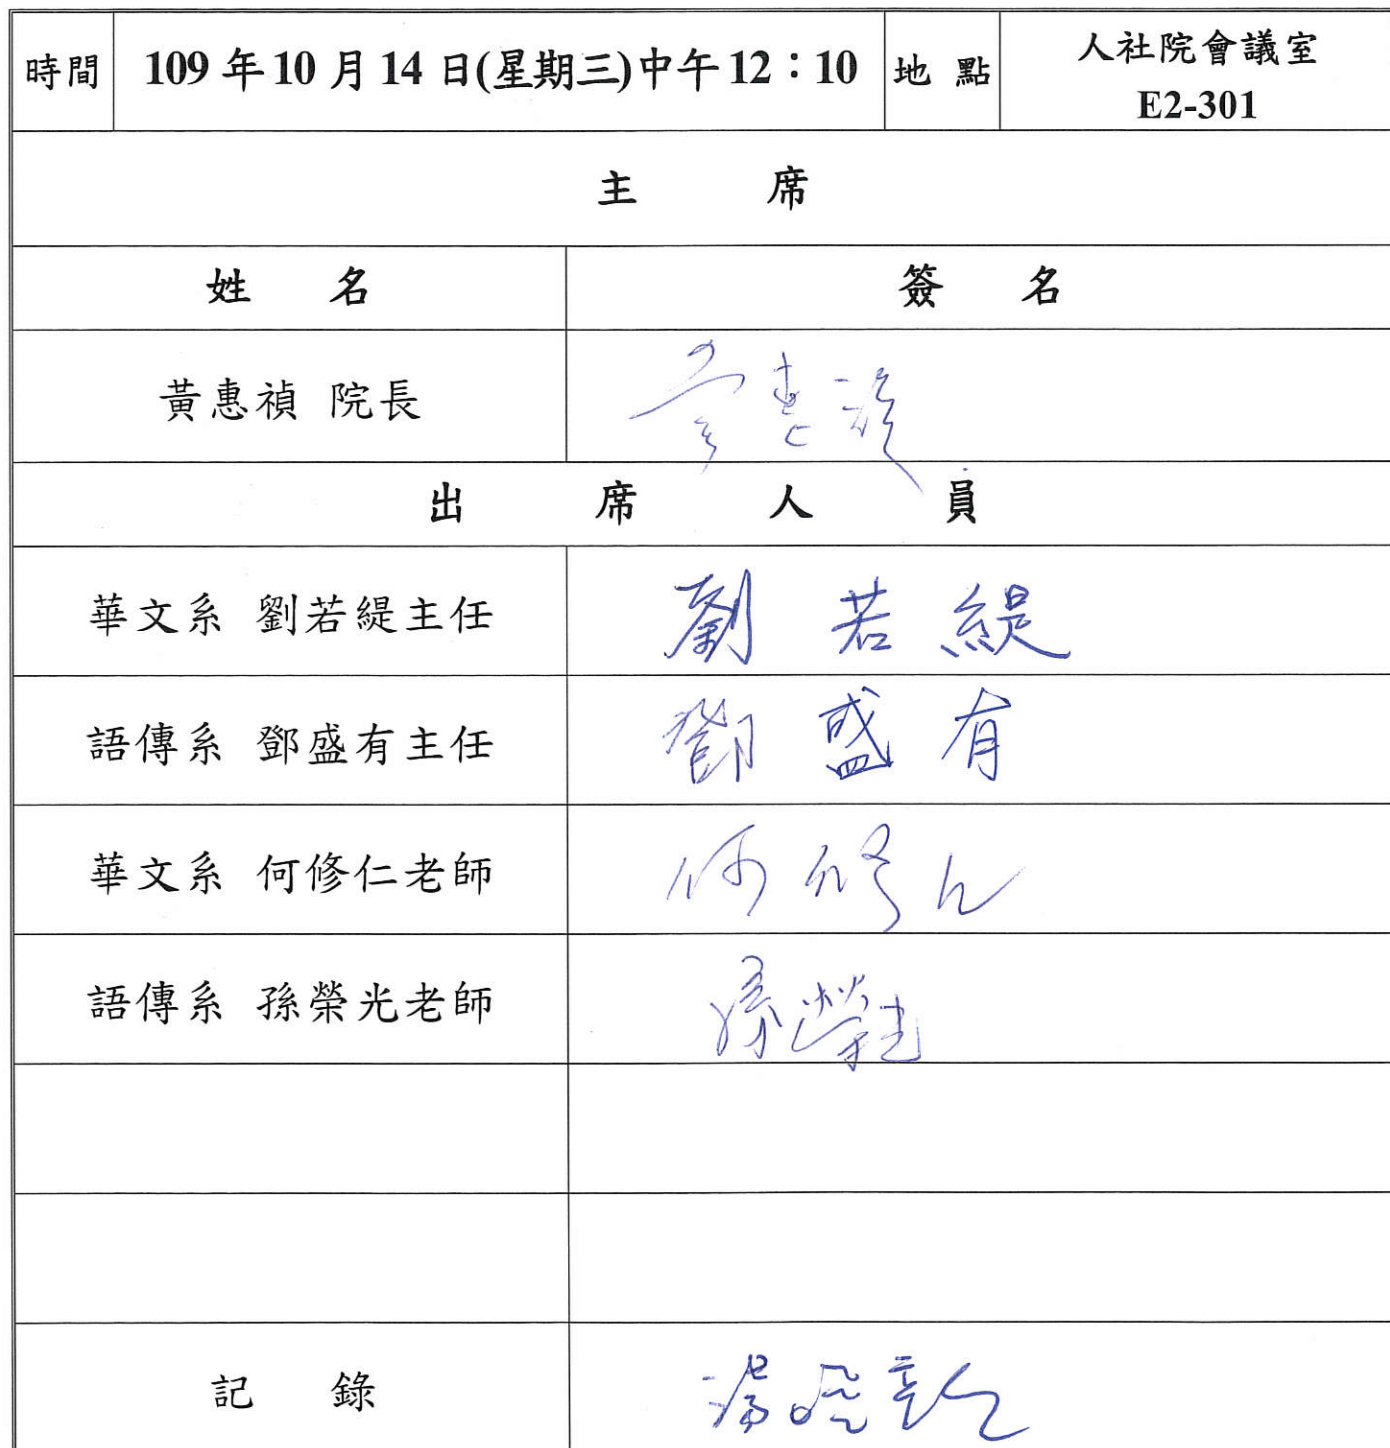 時間 109年10月14日(星期三)中午12：10 地點 人社院會議室
E2-301
主席
姓名 簽名
黃惠禎 院長 黃惠禎
出席人員
華文系 劉若緹主任 劉若緹
語傳系 鄧盛有主任 鄧盛有
華文系 何修仁老師 何修仁
語傳系 孫榮光老師 孫榮光
記錄